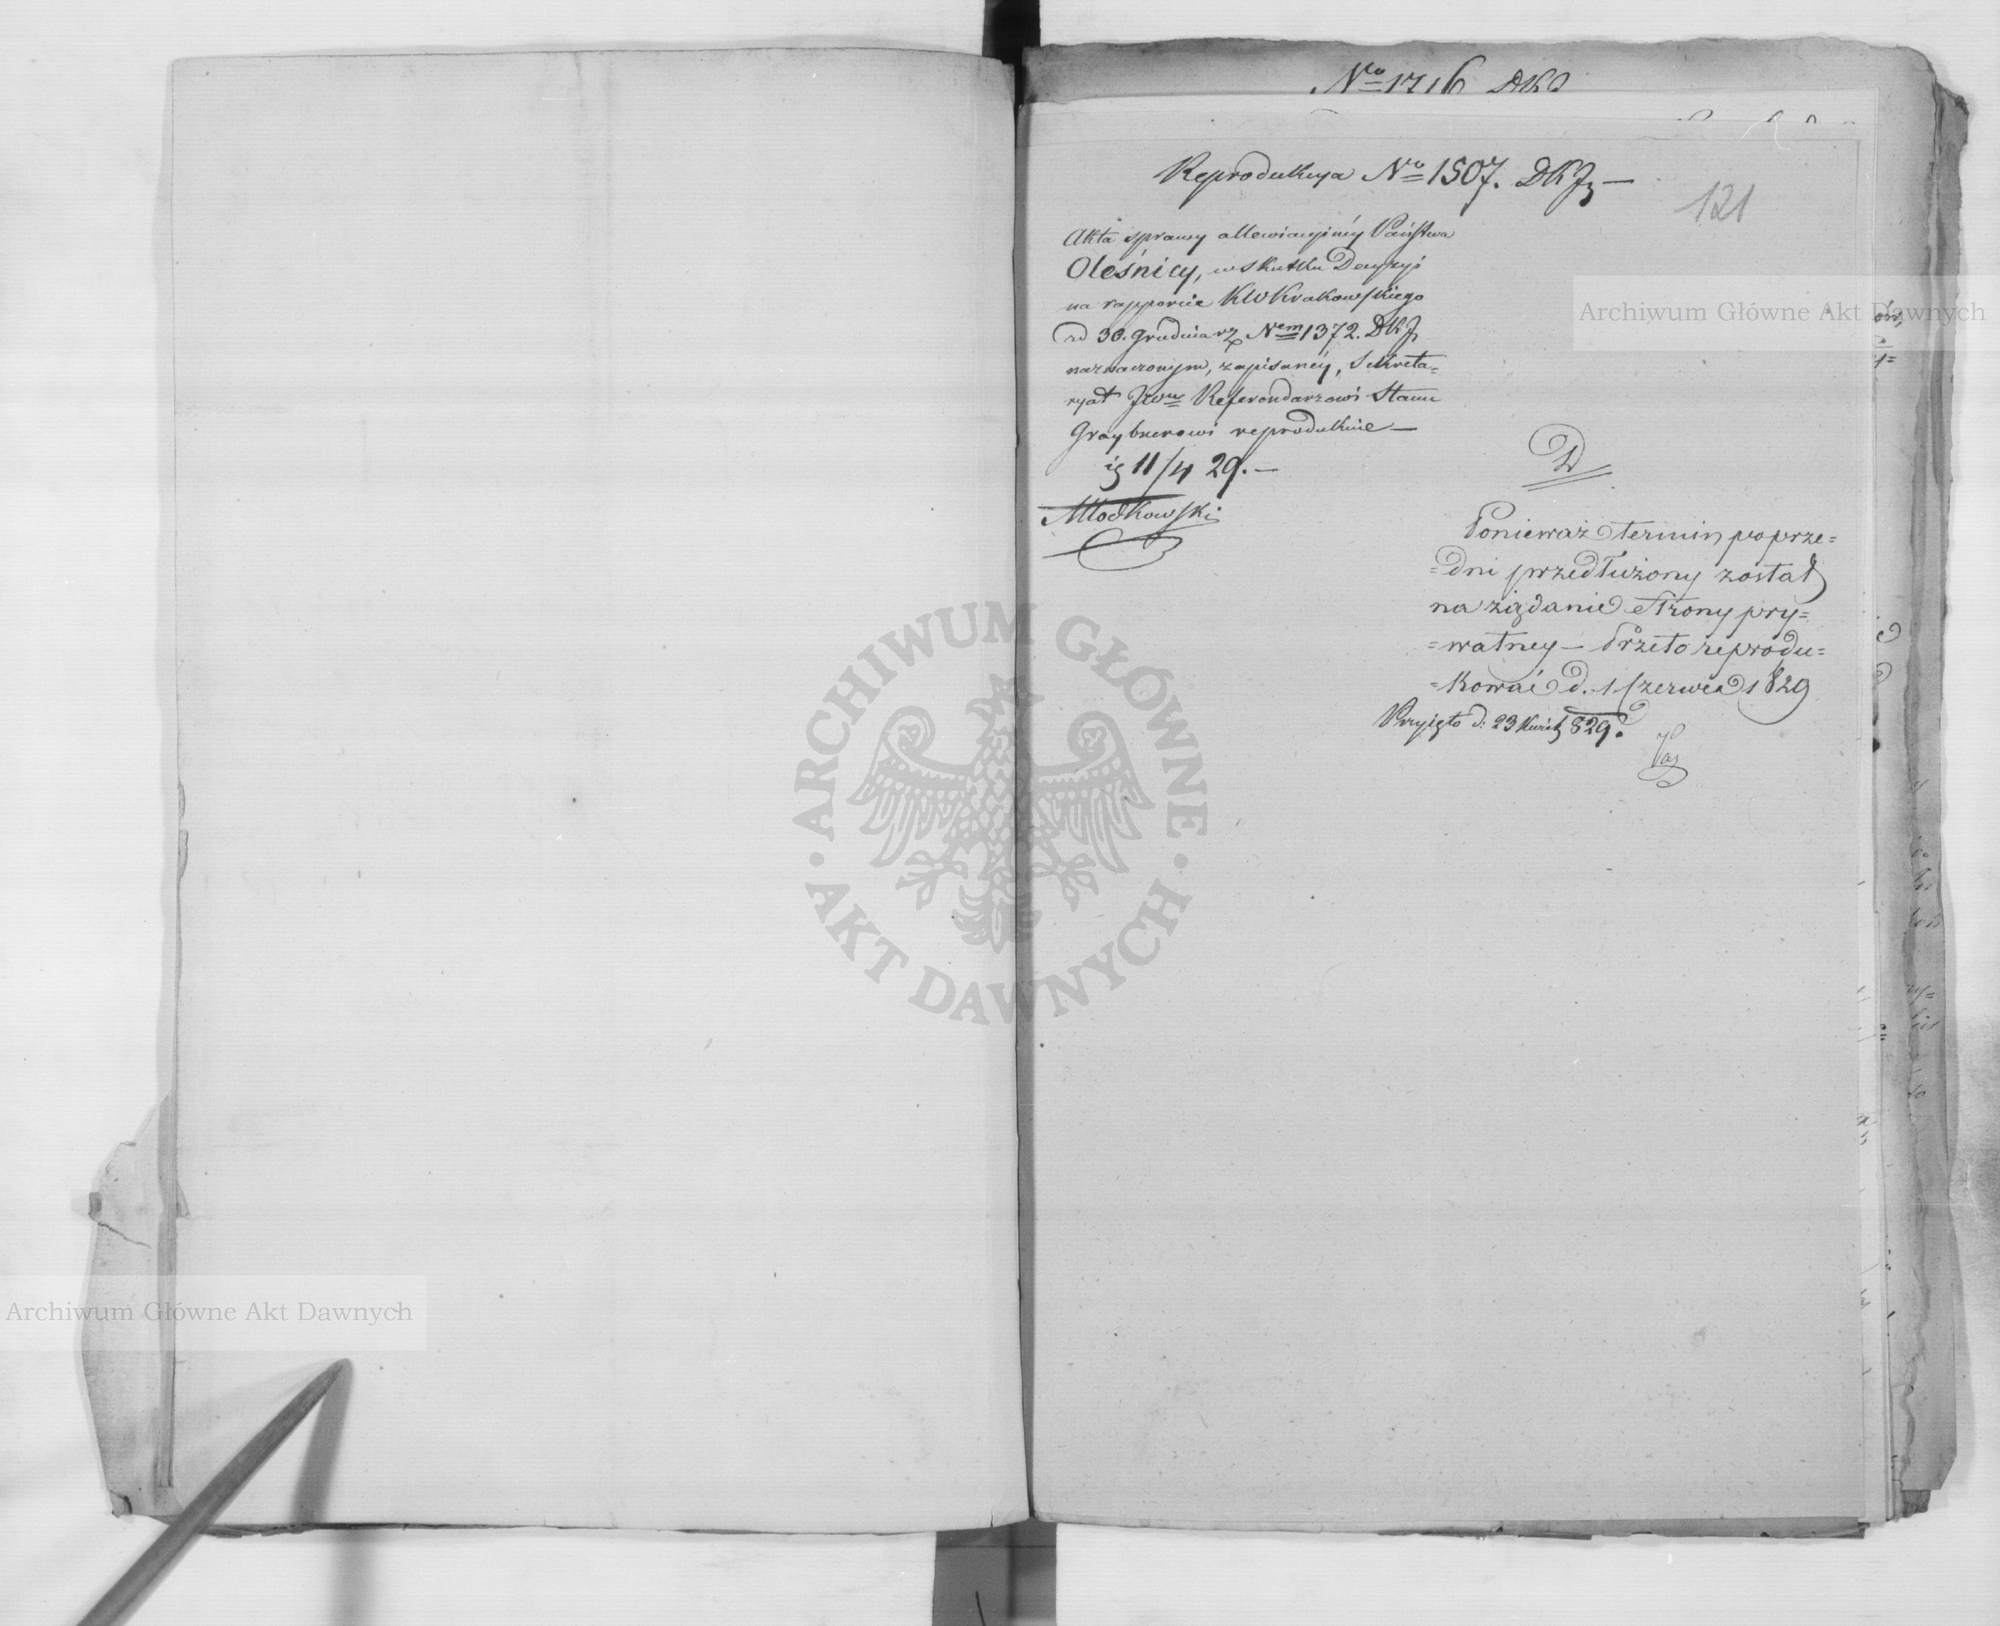 No 1716 DKJ
Reprodukcya No 1507. DKJ —
121
Akta sprawy allewiacyiney Państwa
Oleśnicy, w skutku Decyzyi
na rapporcie KW Krakowskiego
od 30. Grudnia rz Nem 1372. DKJ
naznaczonym, zapisaney, Sekreta-
ryat JWu Referendarzowi Stanu
Graybnerowi reprodukuie —
11/4 29. —
Młodkowski
D
Ponieważ termin poprze=
=dni przedłużony został
na żądanie Strony pry=
=watney — Przeto reprodu=
=kować d. 1 Czerwca 1829
Przyięto d: 23 Kwiet 829.
ARCHIWUM GŁÓWNE
AKT DAWNYCH
Archiwum Główne Akt Dawnych
Archiwum Główne Akt Dawnych